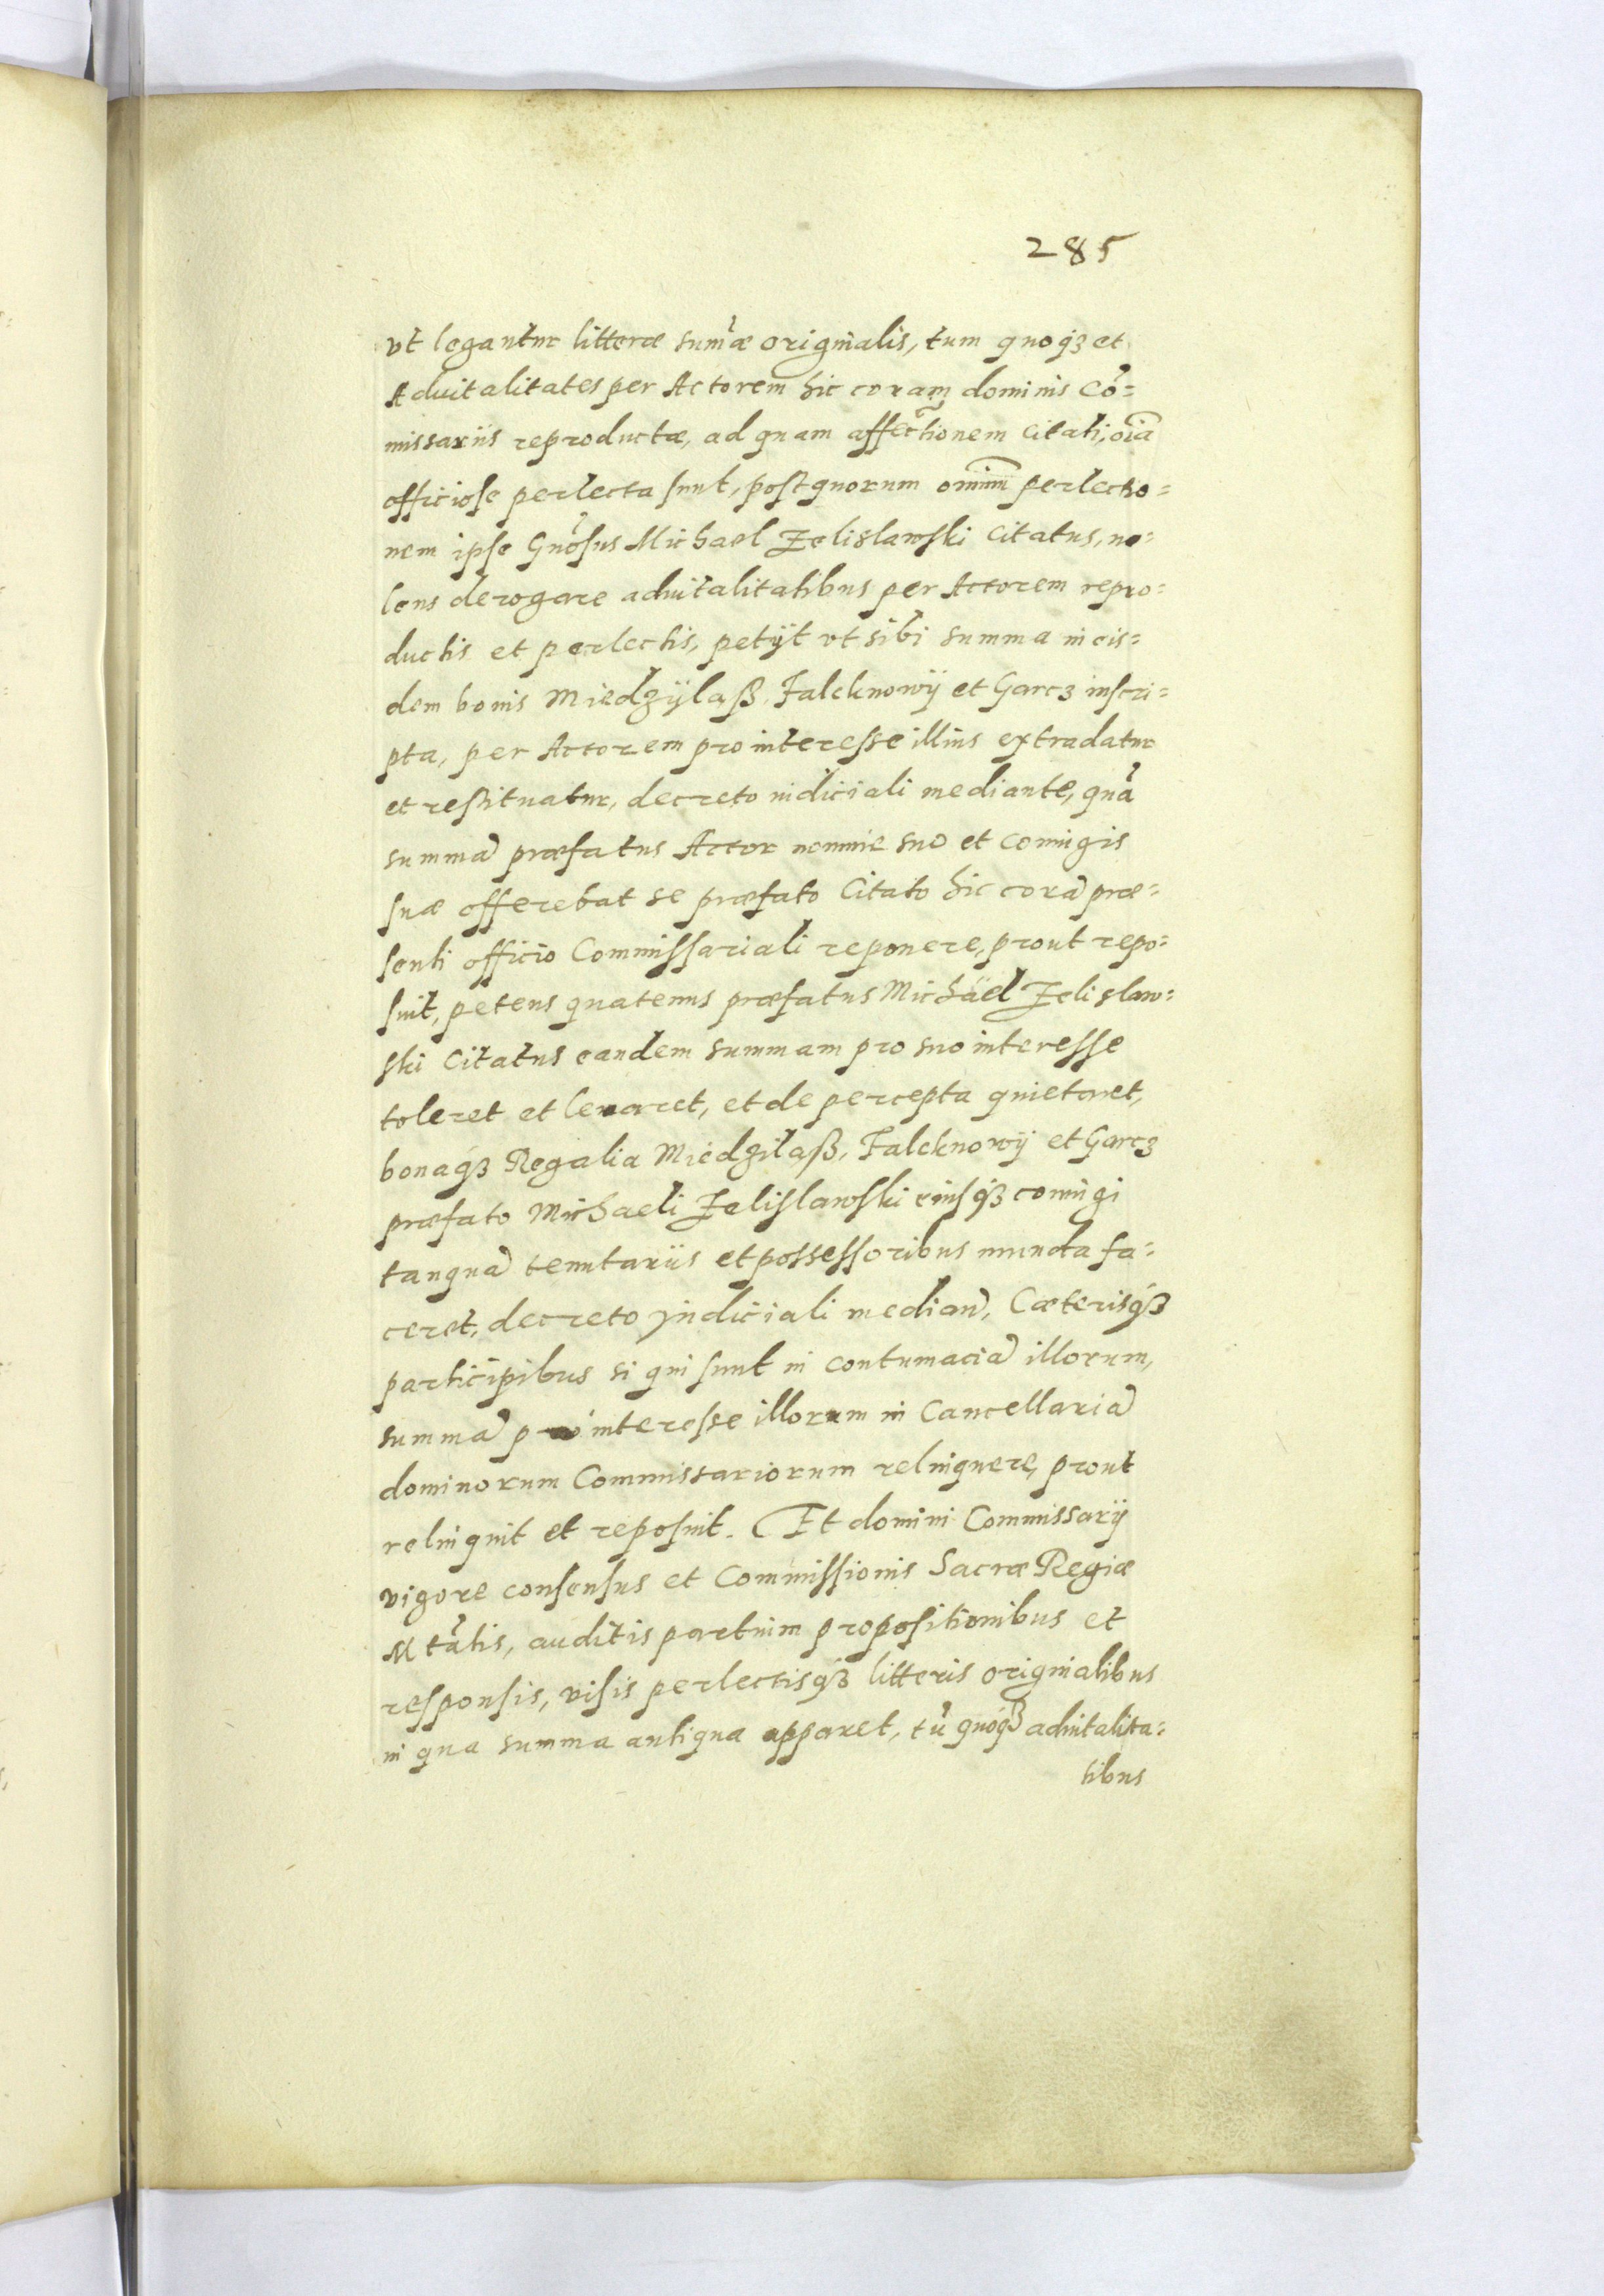 285
vt legantur litteræ sum̃æ originalis, tum quoqȝ et
Aduitalitates per Actorem hic coram dominis Cõ=
missariis reproductæ, ad quam affectionem citati, oĩa
officiose perlecta sunt, post quorum omnium perlectio=
nem ipse Gnõsus Michael Zelislawski Citatus, no=
lens derogare aduitalitatibus per Actorem repro=
ductis et perlectis, petijt vt sibi summa in eis=
dem bonis Miedzÿlaß, Falcknowÿ et Garcz inscri=
pta, per Actorem pro interesse illius extradatur
et restituatur, decreto iudiciali mediante, quã
summã præfatus Actor nomine suo et coniugis
suæ offerebat se præfato Citato hic corã præ=
senti officio Commissariali reponere, prout repo=
suit, petens quatenus præfatus Michäel Zelislaw=
ski Citatus eandem summam pro suo interesse
toleret et leuaret, et de percepta quietaret,
bonaqȝ Regalia Miedzilaß, Falcknowÿ et Garcz
præfato Michaeli Zelislawski eiusqȝ coniugi
tanquã tenutariis et possessoribus munda fa=
ceret, decreto iudiciali median̄, Cæterisqȝ
participibus si qui sunt in contumaciã illorum,
summã pro interesse illorum in Cancellariã
dominorum Commissariorum relinquere, prout
relinquit et reposuit. Et domini Commissarÿ
vigore consensus et Commissionis Sacræ Regiæ
Mtãtis, auditis partium propositionibus et
responsis, visis perlectisqȝ litteris originalibus
in qua summa antiqua apparet, tũ quoqȝ aduitalita=
tibus